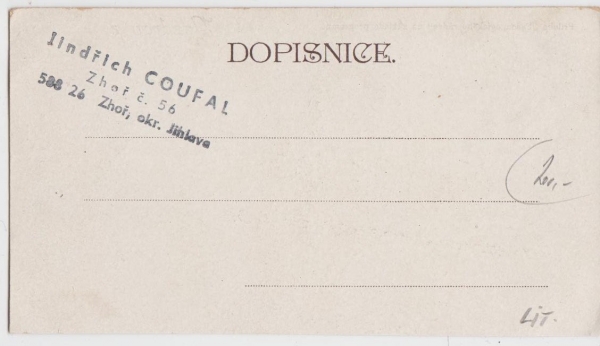 DOPISNICE.
Jindřich COUFAL
Zhoř č. 56
588 26 Zhoř, okr. Jihlava
LIT.